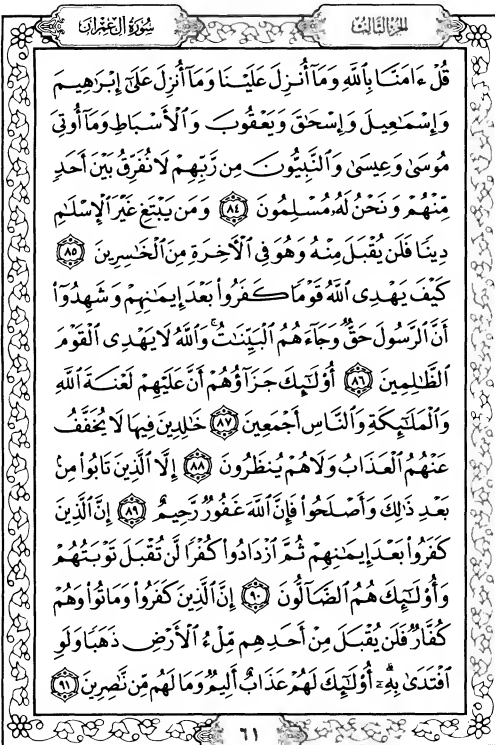 سُورَةُ آلِ عِمْرَان
الجزء الثالث
قُلْ ءَامَنَّا بِٱللَّهِ وَمَآ أُنزِلَ عَلَيْنَا وَمَآ أُنزِلَ عَلَىٰٓ إِبْرَٰهِيمَ
وَإِسْمَٰعِيلَ وَإِسْحَٰقَ وَيَعْقُوبَ وَٱلْأَسْبَاطِ وَمَآ أُوتِىَ
مُوسَىٰ وَعِيسَىٰ وَٱلنَّبِيُّونَ مِن رَّبِّهِمْ لَا نُفَرِّقُ بَيْنَ أَحَدٍ
مِّنْهُمْ وَنَحْنُ لَهُۥ مُسْلِمُونَ ٨٤ وَمَن يَبْتَغِ غَيْرَ ٱلْإِسْلَٰمِ
دِينًا فَلَن يُقْبَلَ مِنْهُ وَهُوَ فِى ٱلْأَخِرَةِ مِنَ ٱلْخَٰسِرِينَ ٨٥
كَيْفَ يَهْدِى ٱللَّهُ قَوْمًا كَفَرُوا۟ بَعْدَ إِيمَٰنِهِمْ وَشَهِدُوٓا۟
أَنَّ ٱلرَّسُولَ حَقٌّ وَجَآءَهُمُ ٱلْبَيِّنَٰتُ ۚ وَٱللَّهُ لَا يَهْدِى ٱلْقَوْمَ
ٱلظَّٰلِمِينَ ٨٦ أُو۟لَٰٓئِكَ جَزَآؤُهُمْ أَنَّ عَلَيْهِمْ لَعْنَةَ ٱللَّهِ
وَٱلْمَلَٰٓئِكَةِ وَٱلنَّاسِ أَجْمَعِينَ ٨٧ خَٰلِدِينَ فِيهَا لَا يُخَفَّفُ
عَنْهُمُ ٱلْعَذَابُ وَلَا هُمْ يُنظَرُونَ ٨٨ إِلَّا ٱلَّذِينَ تَابُوا۟ مِنۢ
بَعْدِ ذَٰلِكَ وَأَصْلَحُوا۟ فَإِنَّ ٱللَّهَ غَفُورٌ رَّحِيمٌ ٨٩ إِنَّ ٱلَّذِينَ
كَفَرُوا۟ بَعْدَ إِيمَٰنِهِمْ ثُمَّ ٱزْدَادُوا۟ كُفْرًا لَّن تُقْبَلَ تَوْبَتُهُمْ
وَأُو۟لَٰٓئِكَ هُمُ ٱلضَّآلُّونَ ٩٠ إِنَّ ٱلَّذِينَ كَفَرُوا۟ وَمَاتُوا۟ وَهُمْ
كُفَّارٌ فَلَن يُقْبَلَ مِنْ أَحَدِهِم مِّلْءُ ٱلْأَرْضِ ذَهَبًا وَلَوِ
ٱفْتَدَىٰ بِهِۦٓ ۗ أُو۟لَٰٓئِكَ لَهُمْ عَذَابٌ أَلِيمٌ وَمَا لَهُم مِّن نَّٰصِرِينَ ٩١
٦١